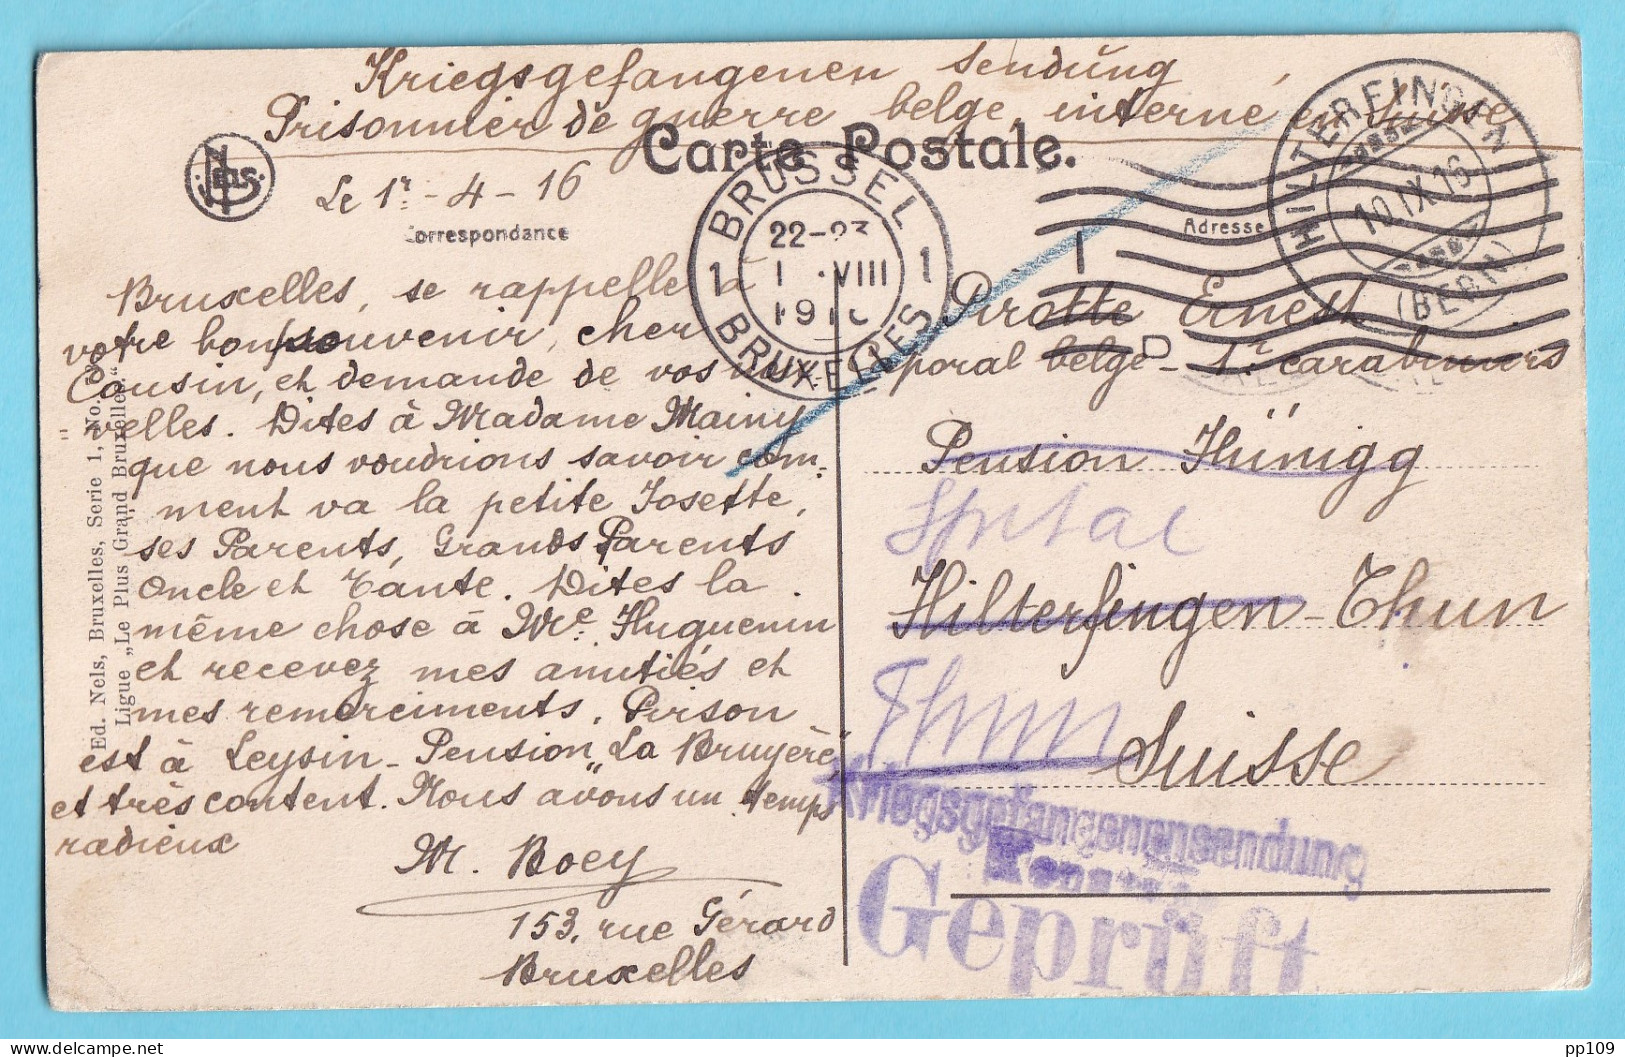 Kriegsgefangenen Sendung
Prisonnier de guerre belge, interné en Suisse
Carte Postale.
Nels
Le 1r - 4 - 16
Correspondance
Adresse
BRUSSEL
22-23
VIII
1 1
BRUXELLES
HILTERFINGEN
10.IX.16
(BERN)
Bruxelles, se rappelle à
votre bon souvenir, cher
Cousin, et demande de vos nou-
velles. Dites à Madame Mainy
que nous voudrions savoir com-
ment va la petite Josette,
ses Parents, Grands Parents
Oncle et Tante. Dites la
même chose à Me. Huguenin
et recevez mes amitiés et
mes remerciments. Pirson
est à Leysin - Pension "La Bruyère"
et très content. Nous avons un temps
radieux
M. Boey
153, rue Gérard
Bruxelles
Pirotte Ernest
Caporal belge - 1r carabiniers
Pension Hünigg
Spital
Hilterfingen - Thun
Thun
Suisse
Kriegsgefangenensendung
Geprüft
Ed. Nels, Bruxelles, Serie 1, No.
Ligue „Le Plus Grand Bruxelles."
pp109